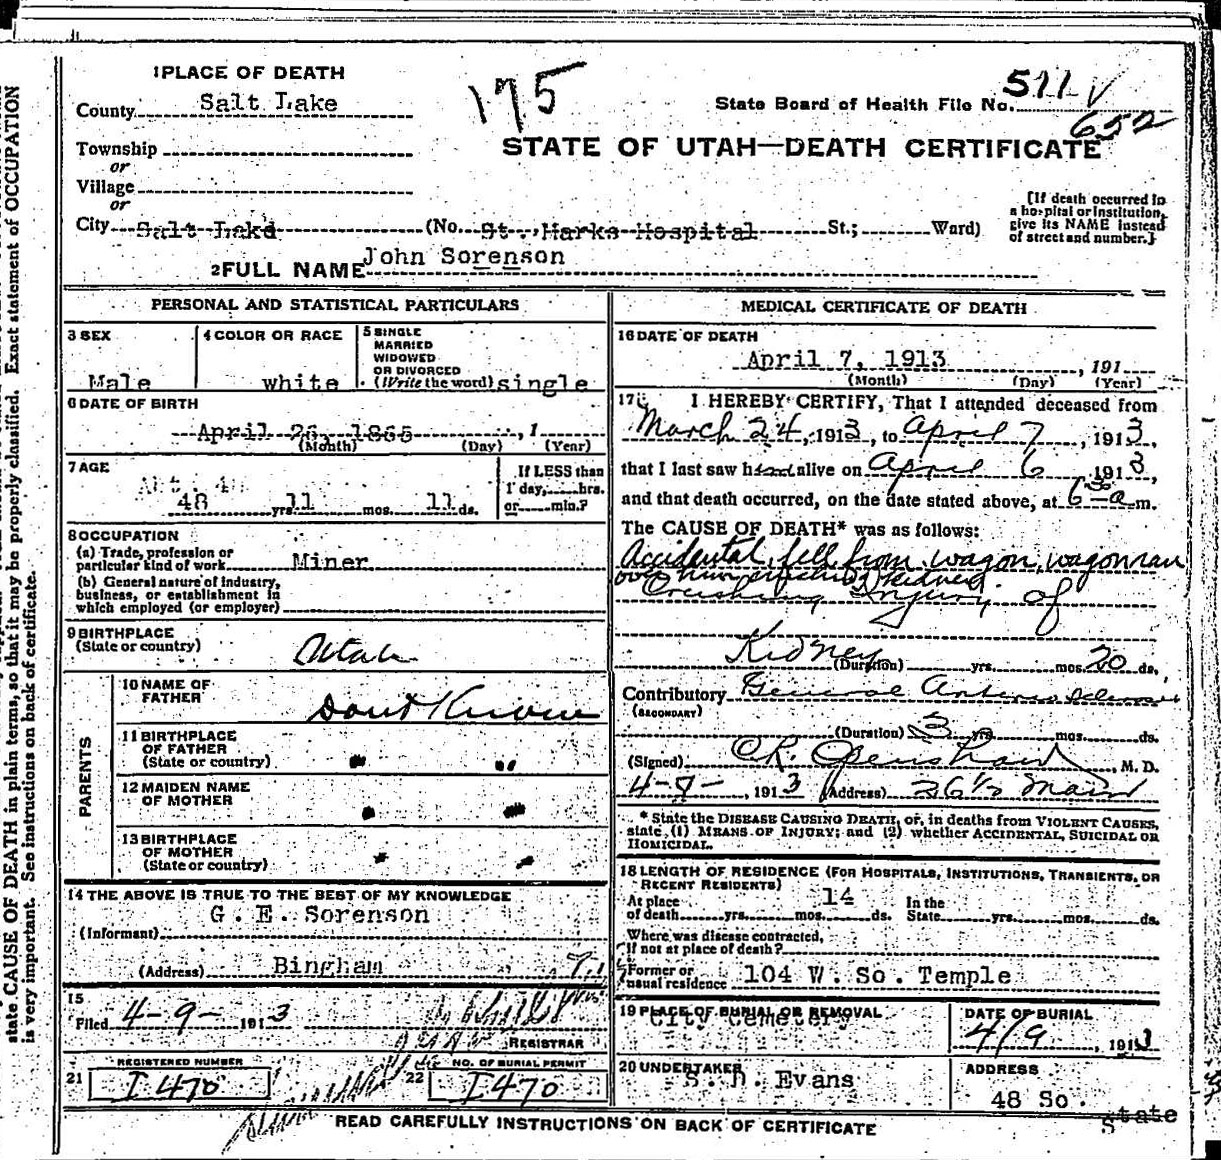 state CAUSE OF DEATH in plain terms, so that it may be properly classified. Exact statement of OCCUPATION
is very important. See instructions on back of certificate.
1 PLACE OF DEATH
County Salt Lake
Township
or
Village
or
City Salt Lake (No. St. Marks Hospital St.; Ward)
175
State Board of Health File No. 511
652
STATE OF UTAH—DEATH CERTIFICATE
[If death occurred in
a hospital or institution,
give its NAME instead
of street and number.]
2 FULL NAME John Sorenson
PERSONAL AND STATISTICAL PARTICULARS
3 SEX
Male
4 COLOR OR RACE
white
5 SINGLE
MARRIED
WIDOWED
OR DIVORCED
(Write the word) single
6 DATE OF BIRTH
April 26, 1865 , 1
(Month) (Day) (Year)
7 AGE
48 yrs. 11 mos. 11 ds.
If LESS than
1 day, hrs.
or min.?
8 OCCUPATION
(a) Trade, profession or
particular kind of work Miner
(b) General nature of industry,
business, or establishment in
which employed (or employer)
9 BIRTHPLACE
(State or country) Utah
PARENTS
10 NAME OF
FATHER Dont Know
11 BIRTHPLACE
OF FATHER
(State or country) " "
12 MAIDEN NAME
OF MOTHER " "
13 BIRTHPLACE
OF MOTHER
(State or country) " "
14 THE ABOVE IS TRUE TO THE BEST OF MY KNOWLEDGE
G. E. Sorenson
(Informant)
(Address) Bingham
15
Filed 4-9- 1913
REGISTRAR
REGISTERED NUMBER
21 I 470
NO. OF BURIAL PERMIT
22 I 470
MEDICAL CERTIFICATE OF DEATH
16 DATE OF DEATH
April 7, 1913 , 191
(Month) (Day) (Year)
17 I HEREBY CERTIFY, That I attended deceased from
March 24, 1913, to April 7, 1913,
that I last saw him alive on April 6, 1913,
and that death occurred, on the date stated above, at 6 30 a m.
The CAUSE OF DEATH* was as follows:
Accidental, fell from wagon, wagon ran
over him crushing kidney
Crushing Injury of
Kidney
(Duration) yrs. mos. 20 ds.
Contributory General Arterio sclerosis
(SECONDARY)
(Duration) 3 yrs. mos. ds.
(Signed) C.R. Openshaw, M. D.
4-7-, 1913 (Address) 36 1/2 Main
* State the DISEASE CAUSING DEATH, or, in deaths from VIOLENT CAUSES,
state (1) MEANS OF INJURY; and (2) whether ACCIDENTAL, SUICIDAL OR
HOMICIDAL.
18 LENGTH OF RESIDENCE (FOR HOSPITALS, INSTITUTIONS, TRANSIENTS, OR
RECENT RESIDENTS)
At place
of death yrs. mos. 14 ds. In the State yrs. mos. ds.
Where was disease contracted,
if not at place of death?
Former or
usual residence 104 W. So. Temple
19 PLACE OF BURIAL OR REMOVAL
City Cemetery
DATE OF BURIAL
4/9, 1913
20 UNDERTAKER
Evans
ADDRESS
48 So. State
READ CAREFULLY INSTRUCTIONS ON BACK OF CERTIFICATE